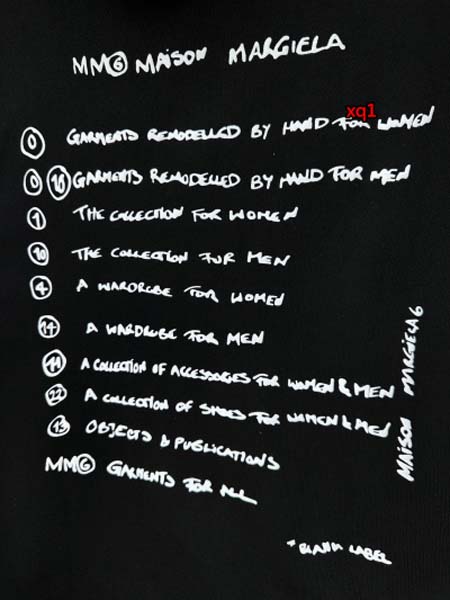 MM⑥ MAISON MARGIELA
xq1
⓪ GARMENTS REMODELLED BY HAND FOR WOMEN
⓪ ⑩ GARMENTS REMODELLED BY HAND FOR MEN
① THE COLLECTION FOR WOMEN
⑩ THE COLLECTION FOR MEN
④ A WARDROBE FOR WOMEN
⑭ A WARDROBE FOR MEN
⑪ A COLLECTION OF ACCESSORIES FOR WOMEN & MEN
㉒ A COLLECTION OF SHOES FOR WOMEN & MEN
⑬ OBJECTS & PUBLICATIONS
MM⑥ GARMENTS FOR ALL
MAISON MARGIELA 6
*BLANK LABEL